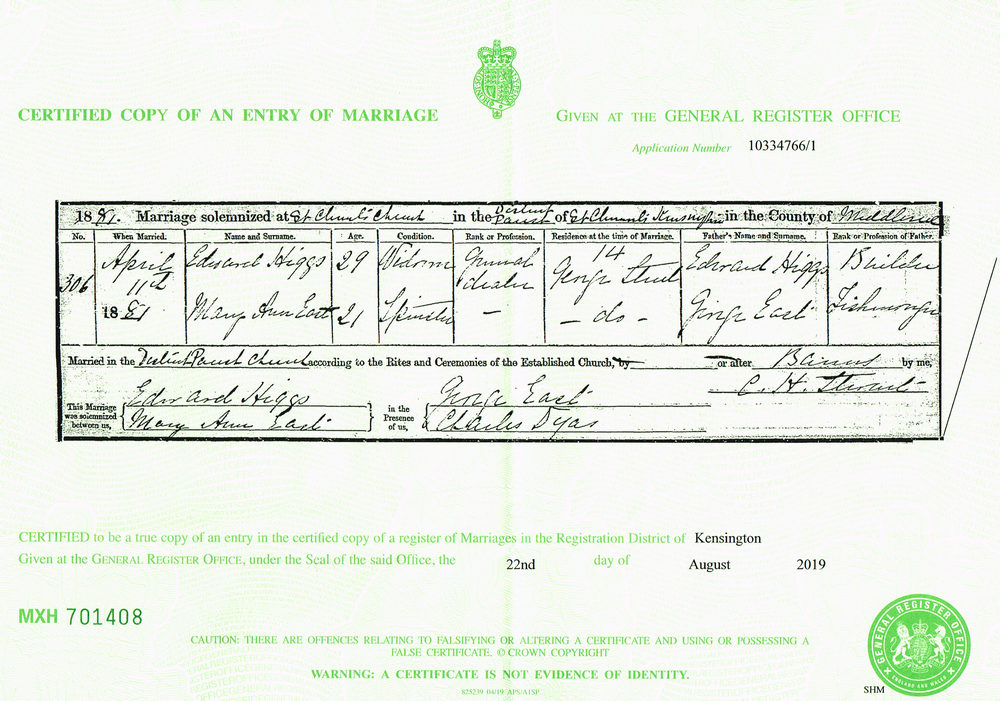 CERTIFIED COPY OF AN ENTRY OF MARRIAGE
GIVEN AT THE GENERAL REGISTER OFFICE
Application Number 10334766/1
1881. Marriage solemnized at St Clement's Church in the District Parish of St Clement's Kensington in the County of Middlesex
No. When Married. Name and Surname. Age. Condition. Rank or Profession. Residence at the time of Marriage. Father's Name and Surname. Rank or Profession of Father.
306 April 11th 1881 Edward Higgs 29 Widower General Dealer 14 George Street Edward Higgs Builder
Mary Ann East 21 Spinster — — do — George East Fishmonger
Married in the District Parish Church according to the Rites and Ceremonies of the Established Church, by or after Banns by me,
C. H.
This Marriage was solemnized between us, Edward Higgs Mary Ann East in the Presence of us, George East Charles Dyas
CERTIFIED to be a true copy of an entry in the certified copy of a register of Marriages in the Registration District of Kensington
Given at the GENERAL REGISTER OFFICE, under the Seal of the said Office, the 22nd day of August 2019
MXH 701408
CAUTION: THERE ARE OFFENCES RELATING TO FALSIFYING OR ALTERING A CERTIFICATE AND USING OR POSSESSING A
FALSE CERTIFICATE. © CROWN COPYRIGHT
WARNING: A CERTIFICATE IS NOT EVIDENCE OF IDENTITY.
825239 04/19 APS/A1SP
SHM
GENERAL REGISTER OFFICE
ENGLAND AND WALES